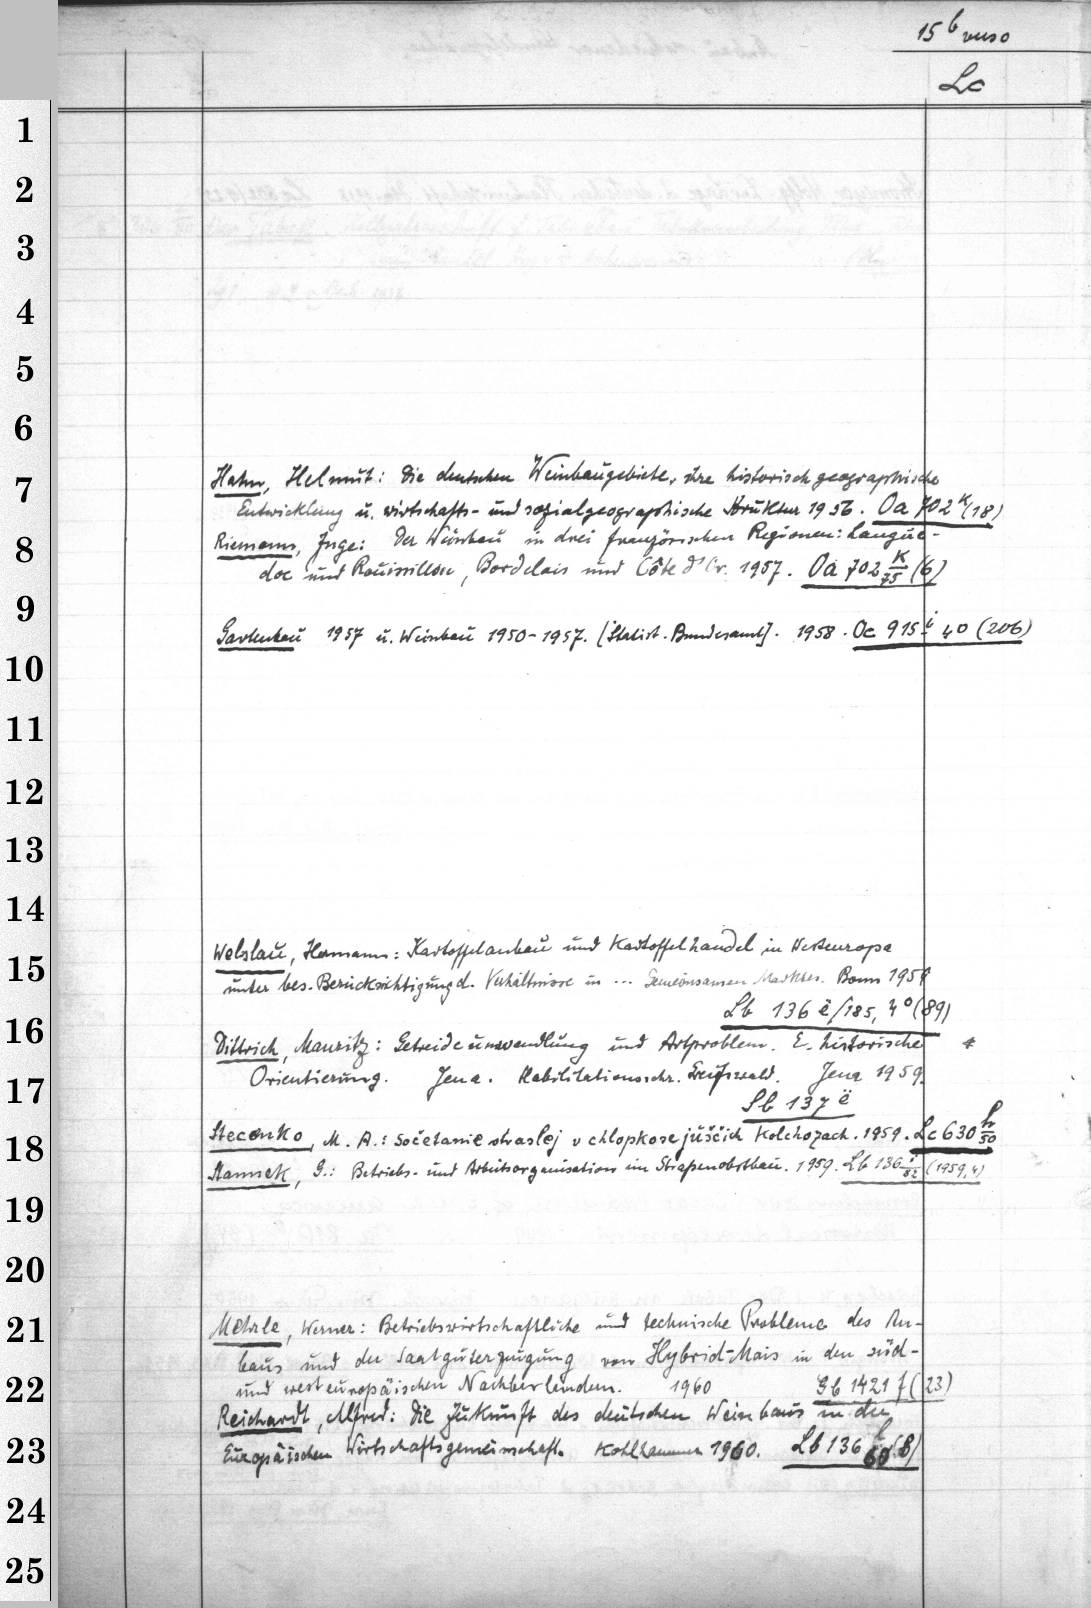 15 b verso
Lc
1
2
3
4
5
6
7
8
9
10
11
12
13
14
15
16
17
18
19
20
21
22
23
24
25
Hahn, Helmut: Die deutschen Weinbaugebiete, ihre historisch geographische
Entwicklung u. wirtschafts- und sozialgeographische Struktur 1956. Oa 702 K/(18)
Riemann, Inge: Der Weinbau in drei französischen Regionen: Langue-
doc und Rouissillon, Bordelais und Côte d'Or. 1957. Oa 702 K/75 (6)
Gartenbau 1957 u. Weinbau 1950-1957. [Statist. Bundesamt]. 1958. Oc 915 i 40 (206)
Welslau, Hermann: Kartoffelanbau und Kartoffelhandel in Westeuropa
unter bes. Berücksichtigung d. Verhältnisse in ... Gemeinsamen Marktes. Bonn 1959
Lb 136 ë/185, 4° (89)
Dittrich, Mauritz: Getreideumwandlung und Artproblem. E. historische
Orientierung. Jena. Habilitationsschr. Greifswald. Jena 1959.
Lb 137 ë
Stecenko, M. A.: Sočetanie otraslej v chlopkosejuščich Kolchozach. 1959. Lc 630 h/50
Stannek, G.: Betriebs- und Arbeitsorganisation im Straßenobstbau. 1959. Lb 136 i/82 (1959,4)
Mehrle, Werner: Betriebswirtschaftliche und technische Probleme des An-
baus und der Saatguterzeugung von Hybrid-Mais in den süd-
und westeuropäischen Nachbarländern. 1960 Gb 1421 f (23)
Reichardt, Alfred: Die Zukunft des deutschen Weinbaus in der
Europäischen Wirtschaftsgemeinschaft. Kohlhammer 1960. Lb 136 l/60 (8)